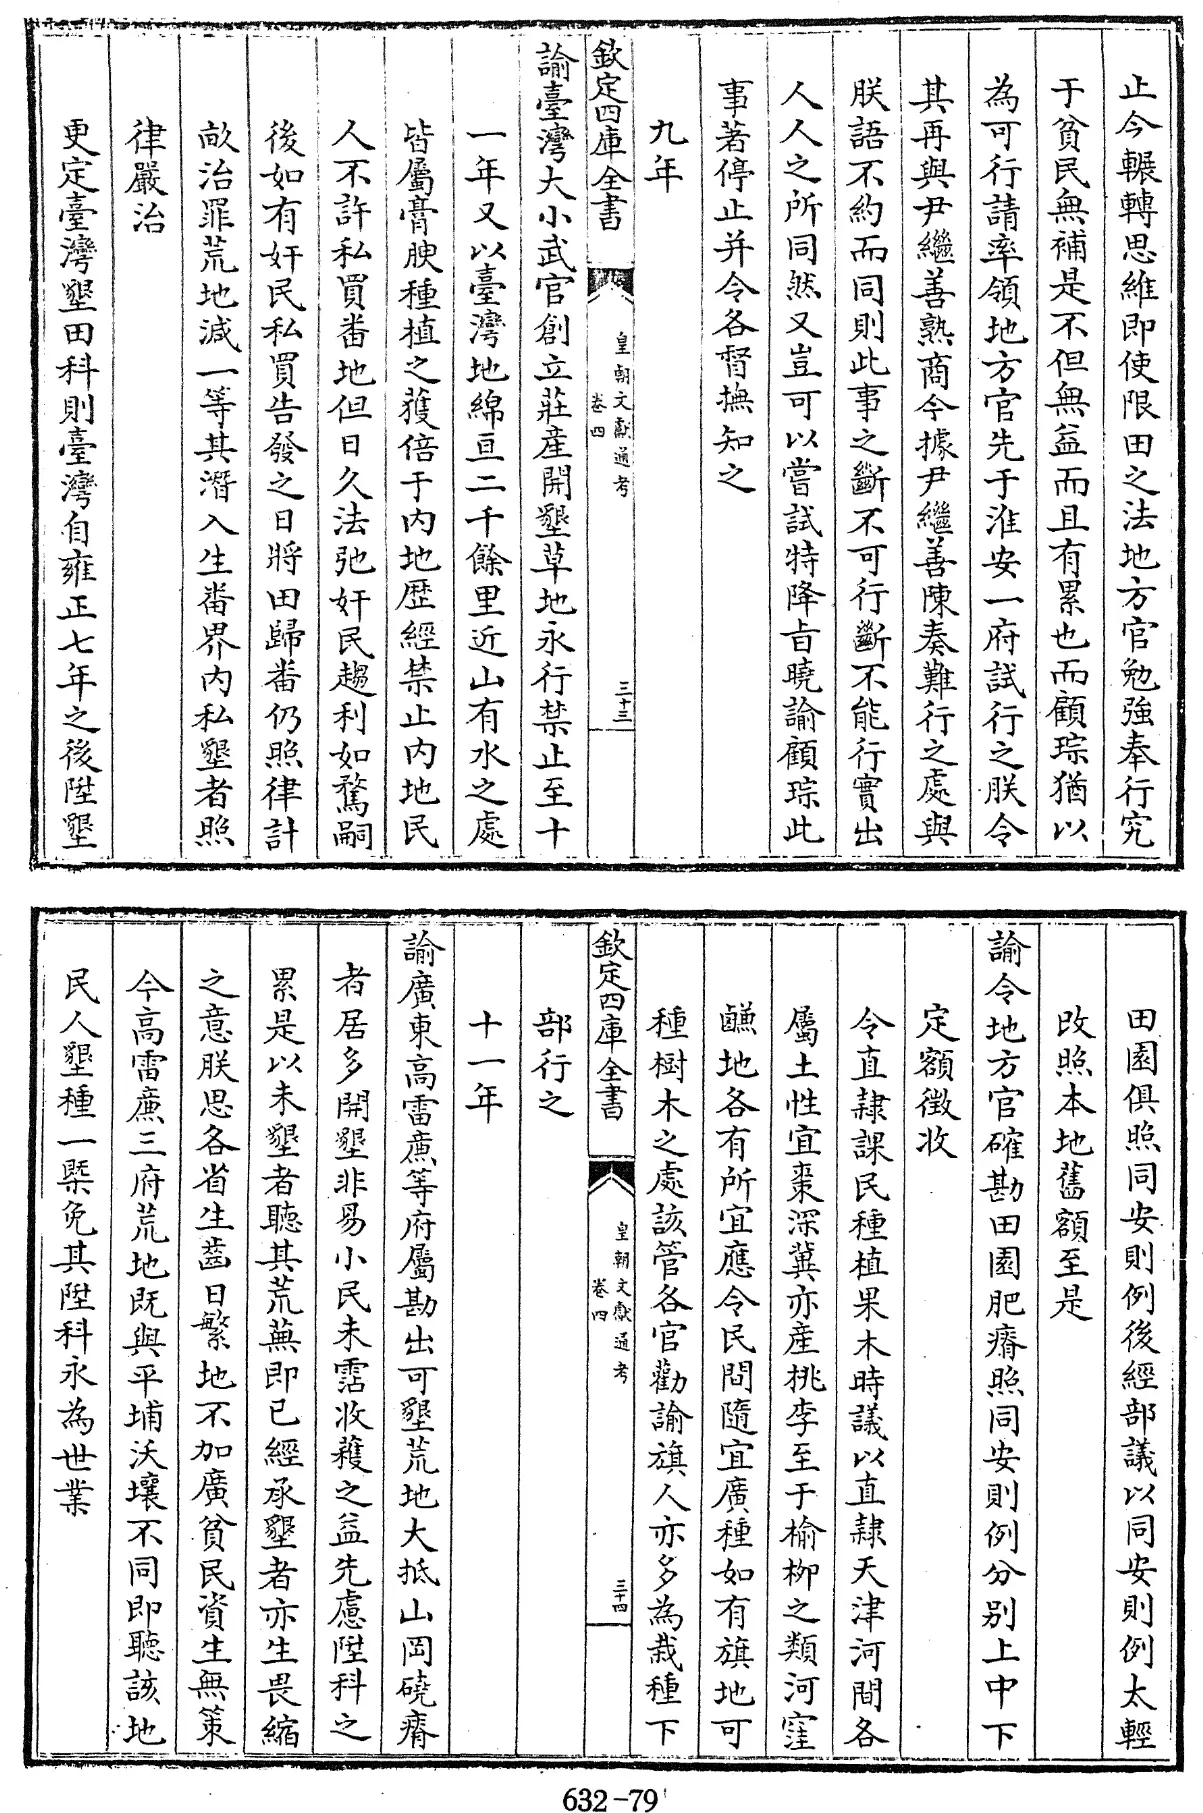 止今輾轉思維即使限田之法地方官勉強奉行究
于貧民無補是不但無益而且有累也而顧琮猶以
為可行請率領地方官先于淮安一府試行之朕令
其再與尹繼善熟商今據尹繼善陳奏難行之處與
朕語不約而同則此事之斷不可行斷不能行實出
人人之所同然又豈可以嘗試特降旨曉諭顧琮此
事著停止并令各督撫知之
九年
欽定四庫全書
皇朝文獻通考
卷四
三十三
諭臺灣大小武官創立莊産開墾草地永行禁止至十
一年又以臺灣地綿亘二千餘里近山有水之處
皆屬膏腴種植之穫倍于内地歴經禁止内地民
人不許私買番地但日久法弛奸民趨利如騖嗣
後如有奸民私買告發之日將田歸番仍照律計
畝治罪荒地減一等其潛入生番界内私墾者照
律嚴治
更定臺灣墾田科則臺灣自雍正七年之後陞墾
田園俱照同安則例後經部議以同安則例太輕
改照本地舊額至是
諭令地方官確勘田園肥瘠照同安則例分别上中下
定額徵收
令直隸課民種植果木時議以直隸天津河間各
屬土性宜棗深冀亦産桃李至于榆柳之類河窪
鹻地各有所宜應令民間隨宜廣種如有旗地可
種樹木之處該管各官勸諭旗人亦多為栽種下
欽定四庫全書
皇朝文獻通考
卷四
三十四
部行之
十一年
諭廣東高雷廉等府屬勘出可墾荒地大抵山岡磽瘠
者居多開墾非易小民未霑收穫之益先慮陞科之
累是以未墾者聽其荒蕪即已經承墾者亦生畏縮
之意朕思各省生齒日繁地不加廣貧民資生無策
今高雷廉三府荒地既與平埔沃壤不同即聽該地
民人墾種一槩免其陞科永為世業
632-79